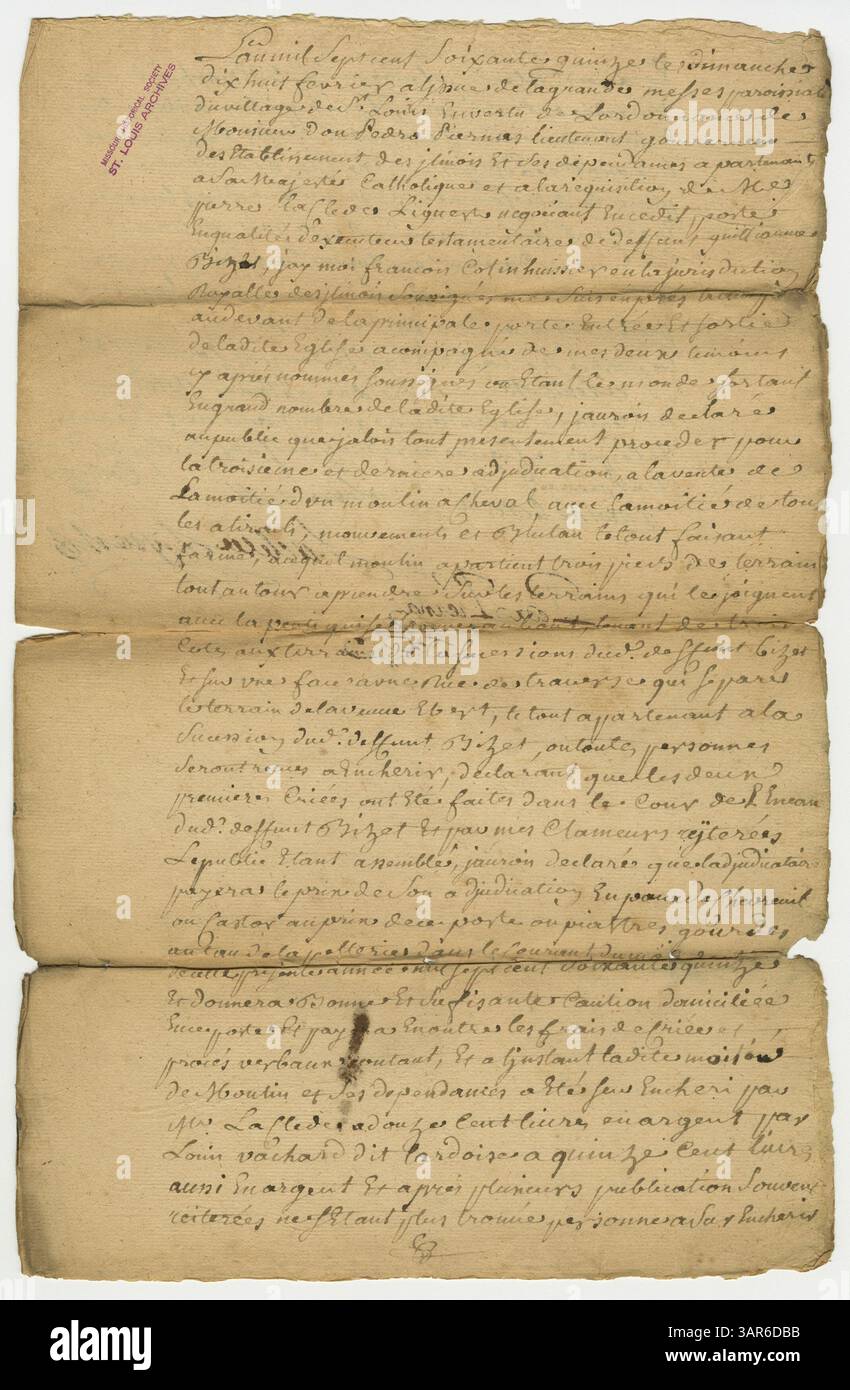 MISSOURI HISTORICAL SOCIETY
ST. LOUIS ARCHIVES
L'an mil Sept cent Soixante quinze le dimanche
dix huit fevrier a lissue de la grande messe paroissial
du village de St. Louis En vertu de Lordonnance de
Monsieur Don Pedro Piernas lieutenant gouverneur
des Etablissement des ilinois Et Ses dependances apartenant
a Sa Majesté Catholique et a la requisition de Me
pierre Laclede Liguest negociant En cedit poste
En qualité dexecuteur testamentaire de deffunt guillaume
Bizet, jay moi francois Cotin huissier en la jurisdiction
Royalle des ilinois Soussigné me Suis exprés transporté
au devant de la principale porte Entrée Et Sortie
de ladite Eglise acompagné de mes deux temoins
cy aprés nommés Soussignés ou Etant le monde Sortant
En grand nombre de ladite Eglise, jaurois declaré
au public que jalois tout presentement proceder pour
la troisieme et derniere adjudication, a la vente de
La moitié d'un moulin a cheval avec la moitié de tous
les mouvements et tout faisant
farine, auquel moulin apartient trois pieds de terrain
tout autour a prendre Sur les terrains qui le joignent
avec la
Cotés aux terrains de la Sucession dud. deffunt bizet
Et Sur une face a une Rue de traverse qui Separe
le terrain de la veuve Ebert, le tout apartenant a la
Sucession dud. deffunt Bizet, ou toutes personnes
Seront reçues a Encherir, declarant que les deux
premieres Criées ont Eté faites dans le Cour de L'Encan
dud. deffunt Bizet Et par mes Clameurs reyterées
Le public Etant assemblé, jaurois declaré que ladjudicataire
payera le prix de Son adjudication En peaux de Chevreuil
ou Castor au prix de ce poste ou piastres gourdes
au tau de la pelleterie dans le Courant du mois
de cette presente année mil Sept cent Soixante quinze
Et donnera Bonne Et Sufisante Caution domiciliée
En ce poste Et payera En outre les frais de Criée et
procés verbaux contant, Et a l'instant ladite moitié
de Moulin et Ses dependances a Eté Sur Encheri par
Mr. Laclede a douze Cent livres en argent par
Louis vachard dit Lardoise a quinze Cent livres
aussi En argent Et aprés plusieurs publication Souvent
reiterées ne S'Etant plus trouvé personne a Sur Encherir
a alamy stock photo
alamy
Image ID: 3AR6DBB
www.alamy.com